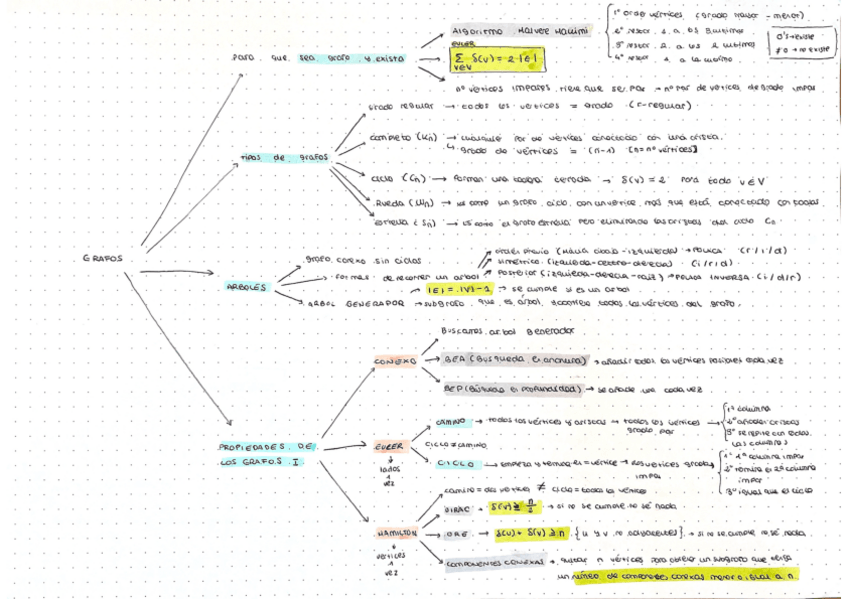 GRAFOS
para que sea grafo y exista
Algoritmo Halver Hakimi
1º orde vértices (grado mayor - menor)
2º restar 1 a los 3 últimos
3º restar 1 a los 2 últimos
4º restar 1 a último
0's → existe
≠0 → no existe
EULER
Σ δ(v) = 2·|E|
v∈V
nº vértices impares tiene que ser par → nº par de vértices de grado impar
tipos de grafos
grado regular → todos los vértices = grado (r-regular)
completo (Kn) → cualquier par de vértices conectado con una arista
↳ grado de vértices = (n-1) [n = nº vértices]
ciclo (Cn) → forman una cerrada → δ(v) = 2 para todo v ∈ V
Rueda (Wn) → es como un grafo ciclo, con un vértice más que está conectado con todos
estrella (Sn) → es como el grafo pero eliminando las aristas del ciclo Cn
ARBOLES
grafo conexo sin ciclos
formas de recorrer un arbol
orden previo (raiz-izquierda) → polaca (r/i/d)
simétrico (izquierda-centro-derecha) (i/r/d)
Posterior (izquierda-derecha-raiz) → polaca INVERSA (i/d/r)
|E| = |V| - 1 → se cumple si es un arbol
ARBOL GENERADOR → subgrafo que es árbol, y contiene todos los vértices del grafo.
PROPIEDADES DE
LOS GRAFOS I
CONEXO
Buscamos arbol generador
BEA (Búsqueda en anchura) → añadir todos los vértices posibles cada vez
BEP (Búsqueda en profundidad) → se añade uno cada vez
EULER
↓
lados
1
vez
CAMINO → todos los vértices y aristas → todos los vértices
grado par
1º columna
2º añadir aristas
3º se repite con todas
las columnas
CICLO ≠ CAMINO
CICLO → empieza y termina en = vértice → dos vértices grado
impar
1º 1ª columna impar
2º termina en 2ª columna
impar
3º igual que el ciclo
HAMILTON
↓
vértices
1
vez
camino = dos vértices ≠ ciclo = todos los vértices
DIRAC → δ(v) ≥ n/2 → si no se cumple no sé nada
ORE → δ(u) + δ(v) ≥ n {u y v no adyacentes} → si no se cumple no sé nada
COMPONENTES CONEXAS → quitar n vértices para obtener un subgrafo que tenga
un número de componentes conexas menor o igual a n